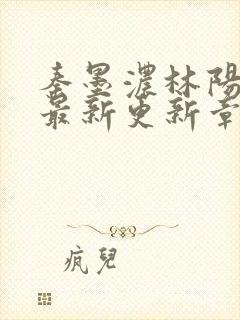 秦墨濃林陽
最新更新章
疯兒